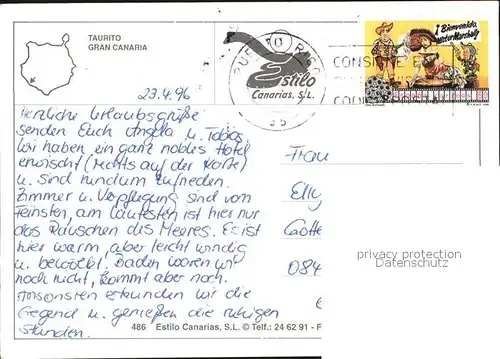 TAURITO
GRAN CANARIA
23.4.96
Herzliche Urlaubsgrüße
senden Euch Angela u. Tobias
Wir haben ein ganz nobles Hotel
erwischt (rechts auf der Karte)
u. sind rundum zufrieden.
Zimmer u. Verpflegung sind vom
Feinsten, am lautesten ist hier nur
das Rauschen des Meeres. Es ist
hier warm, aber leicht windig
u. bewölkt. Baden waren wir
noch nicht, kommt aber noch.
Ansonsten erkunden wir die
Gegend u. genießen die ruhigen
Stunden.
Estilo
Canarias, S.L.
PUERTO RICO
CONSIGNE
¡ Bienvenido,
Mister Marshall!
Frau
Elly
Gött
084
privacy protection
Datenschutz
486 Estilo Canarias, S.L. © Telf.: 24 62 91 - F